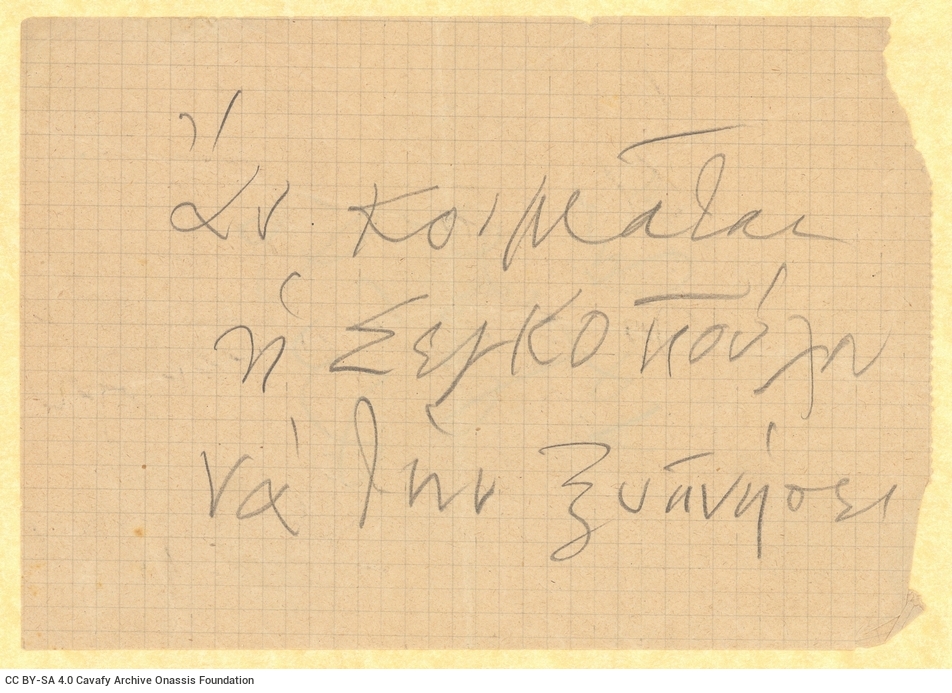 Ἂν κοιμᾶται
ἡ Σεγκοπούλου
νὰ τὴν ξυπνήσει
CC BY-SA 4.0 Cavafy Archive Onassis Foundation